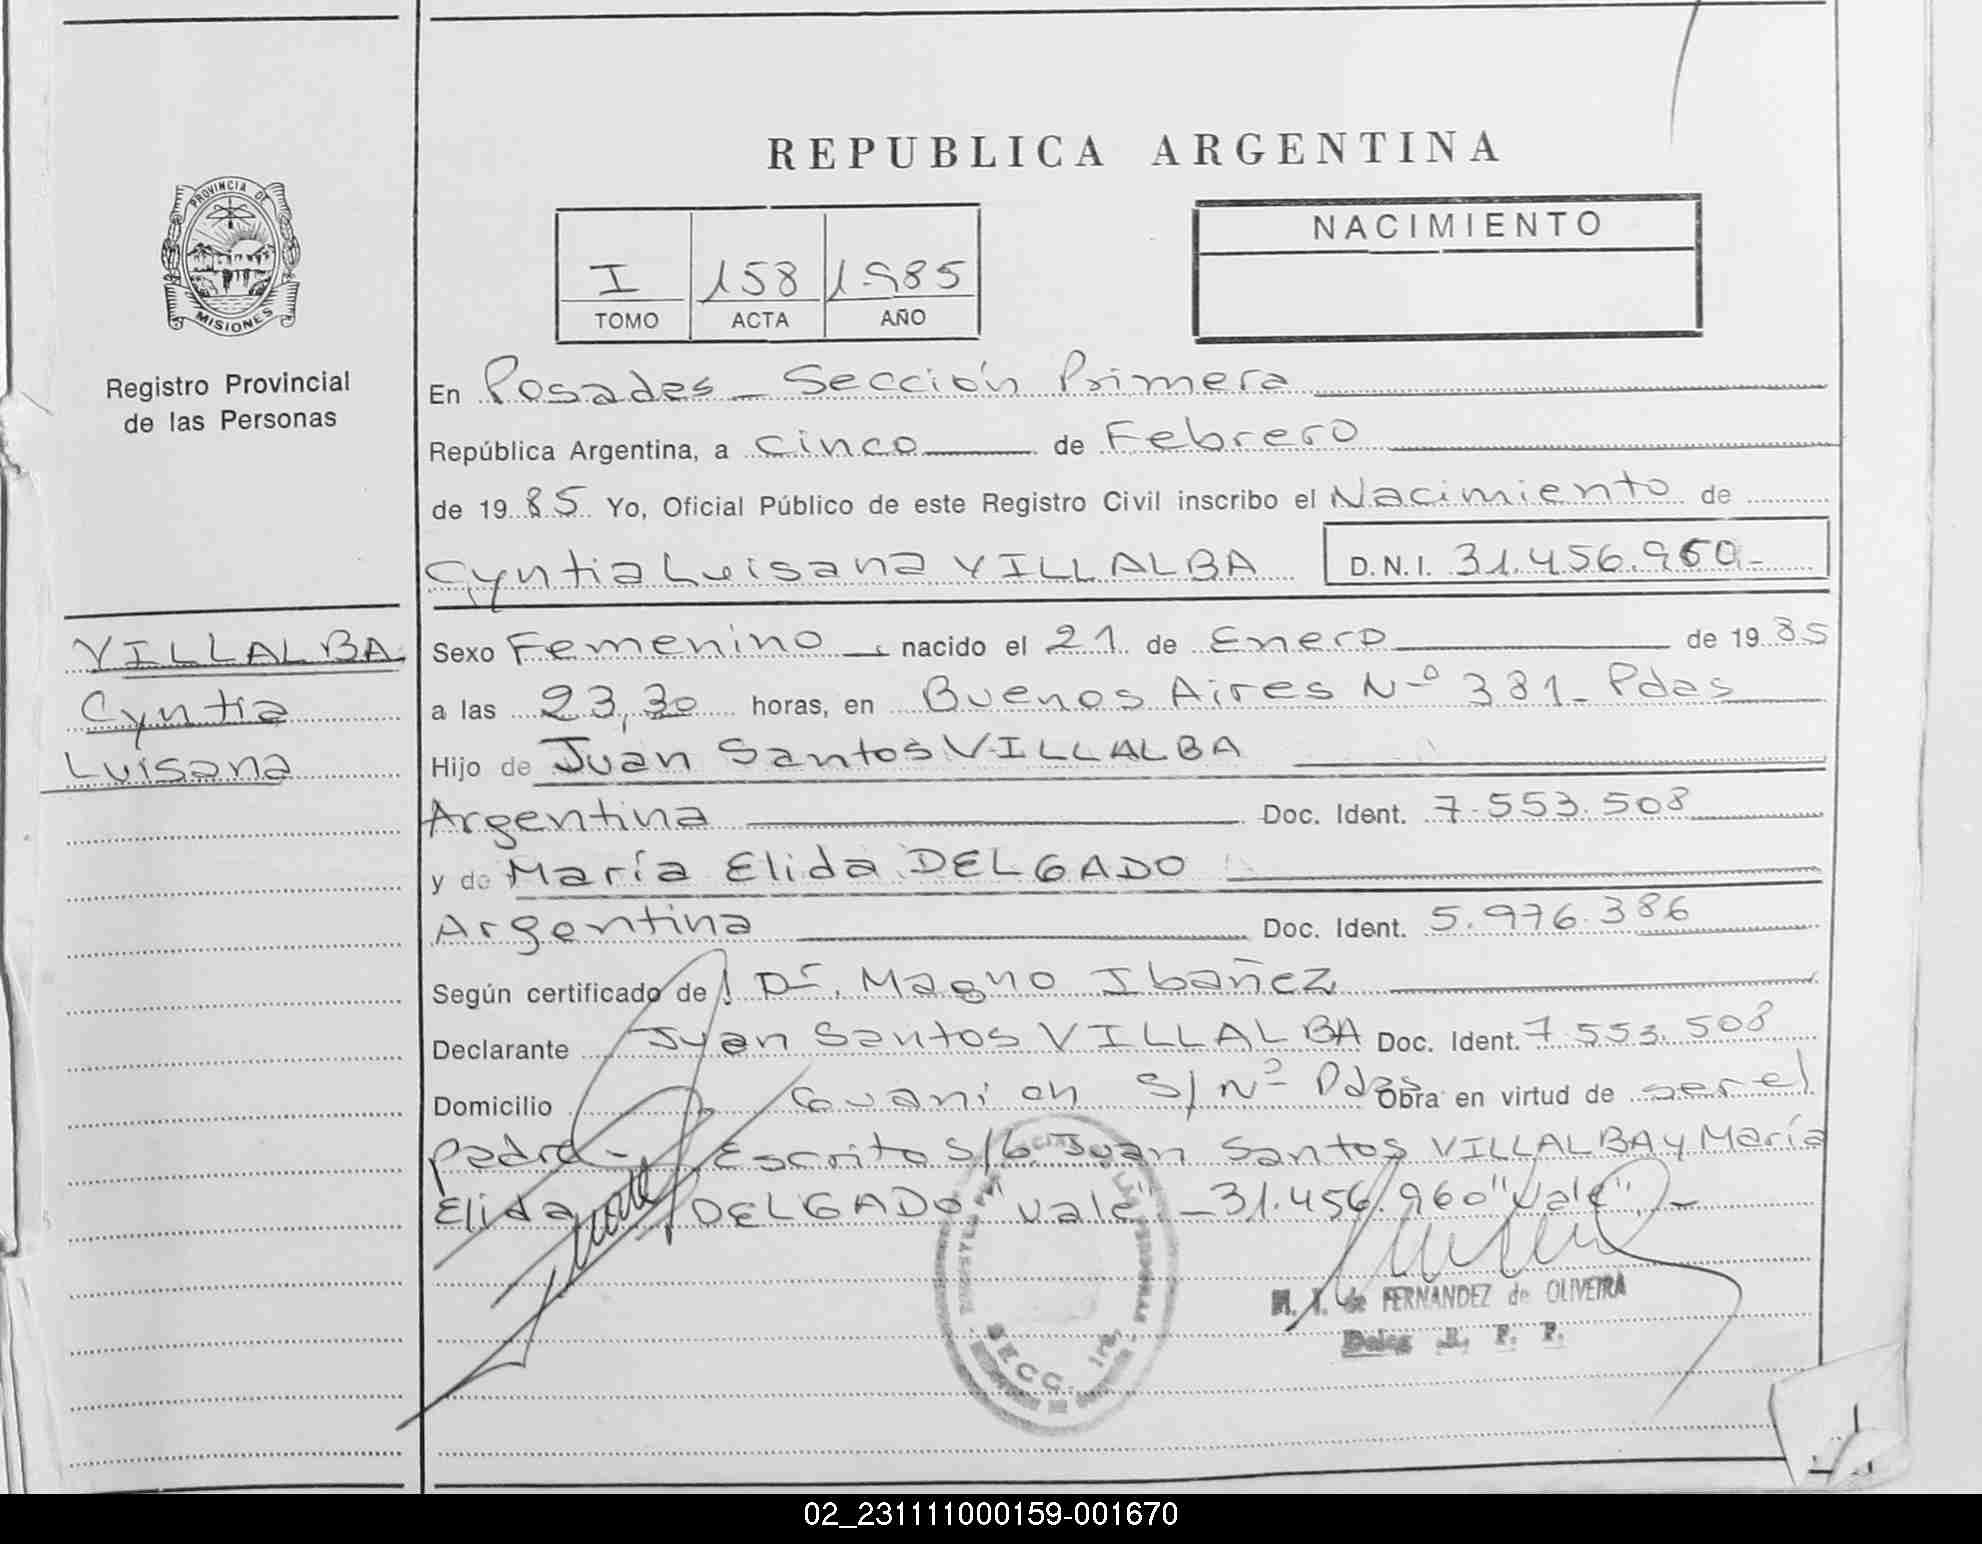 REPUBLICA ARGENTINA
PROVINCIA DE
MISIONES
Registro Provincial
de las Personas
I 158 1985
TOMO ACTA AÑO
NACIMIENTO
En Posadas - Sección Primera
República Argentina, a cinco de Febrero
de 1985 Yo, Oficial Público de este Registro Civil inscribo el Nacimiento de
Cyntia Luisana VILLALBA D.N.I. 31.456.960-
VILLALBA
Cyntia
Luisana
Sexo Femenino, nacido el 21 de Enero de 1985
a las 23,30 horas, en Buenos Aires Nº 381- Pdas
Hijo de Juan Santos VILLALBA
Argentina Doc. Ident. 7.553.508
y de María Elida DELGADO
Argentina Doc. Ident. 5.976.386
Según certificado de Dr. Magno Ibañez
Declarante Juan Santos VILLALBA Doc. Ident. 7.553.508
Domicilio S/Nº Pdas Obra en virtud de ser el
padre - Escrito s/b. Juan Santos VILLALBA y María
Elida DELGADO "vale" - 31.456.960 "vale". -
M. I. de FERNANDEZ de OLIVEIRA
SECC. 1ra.
02_231111000159-001670